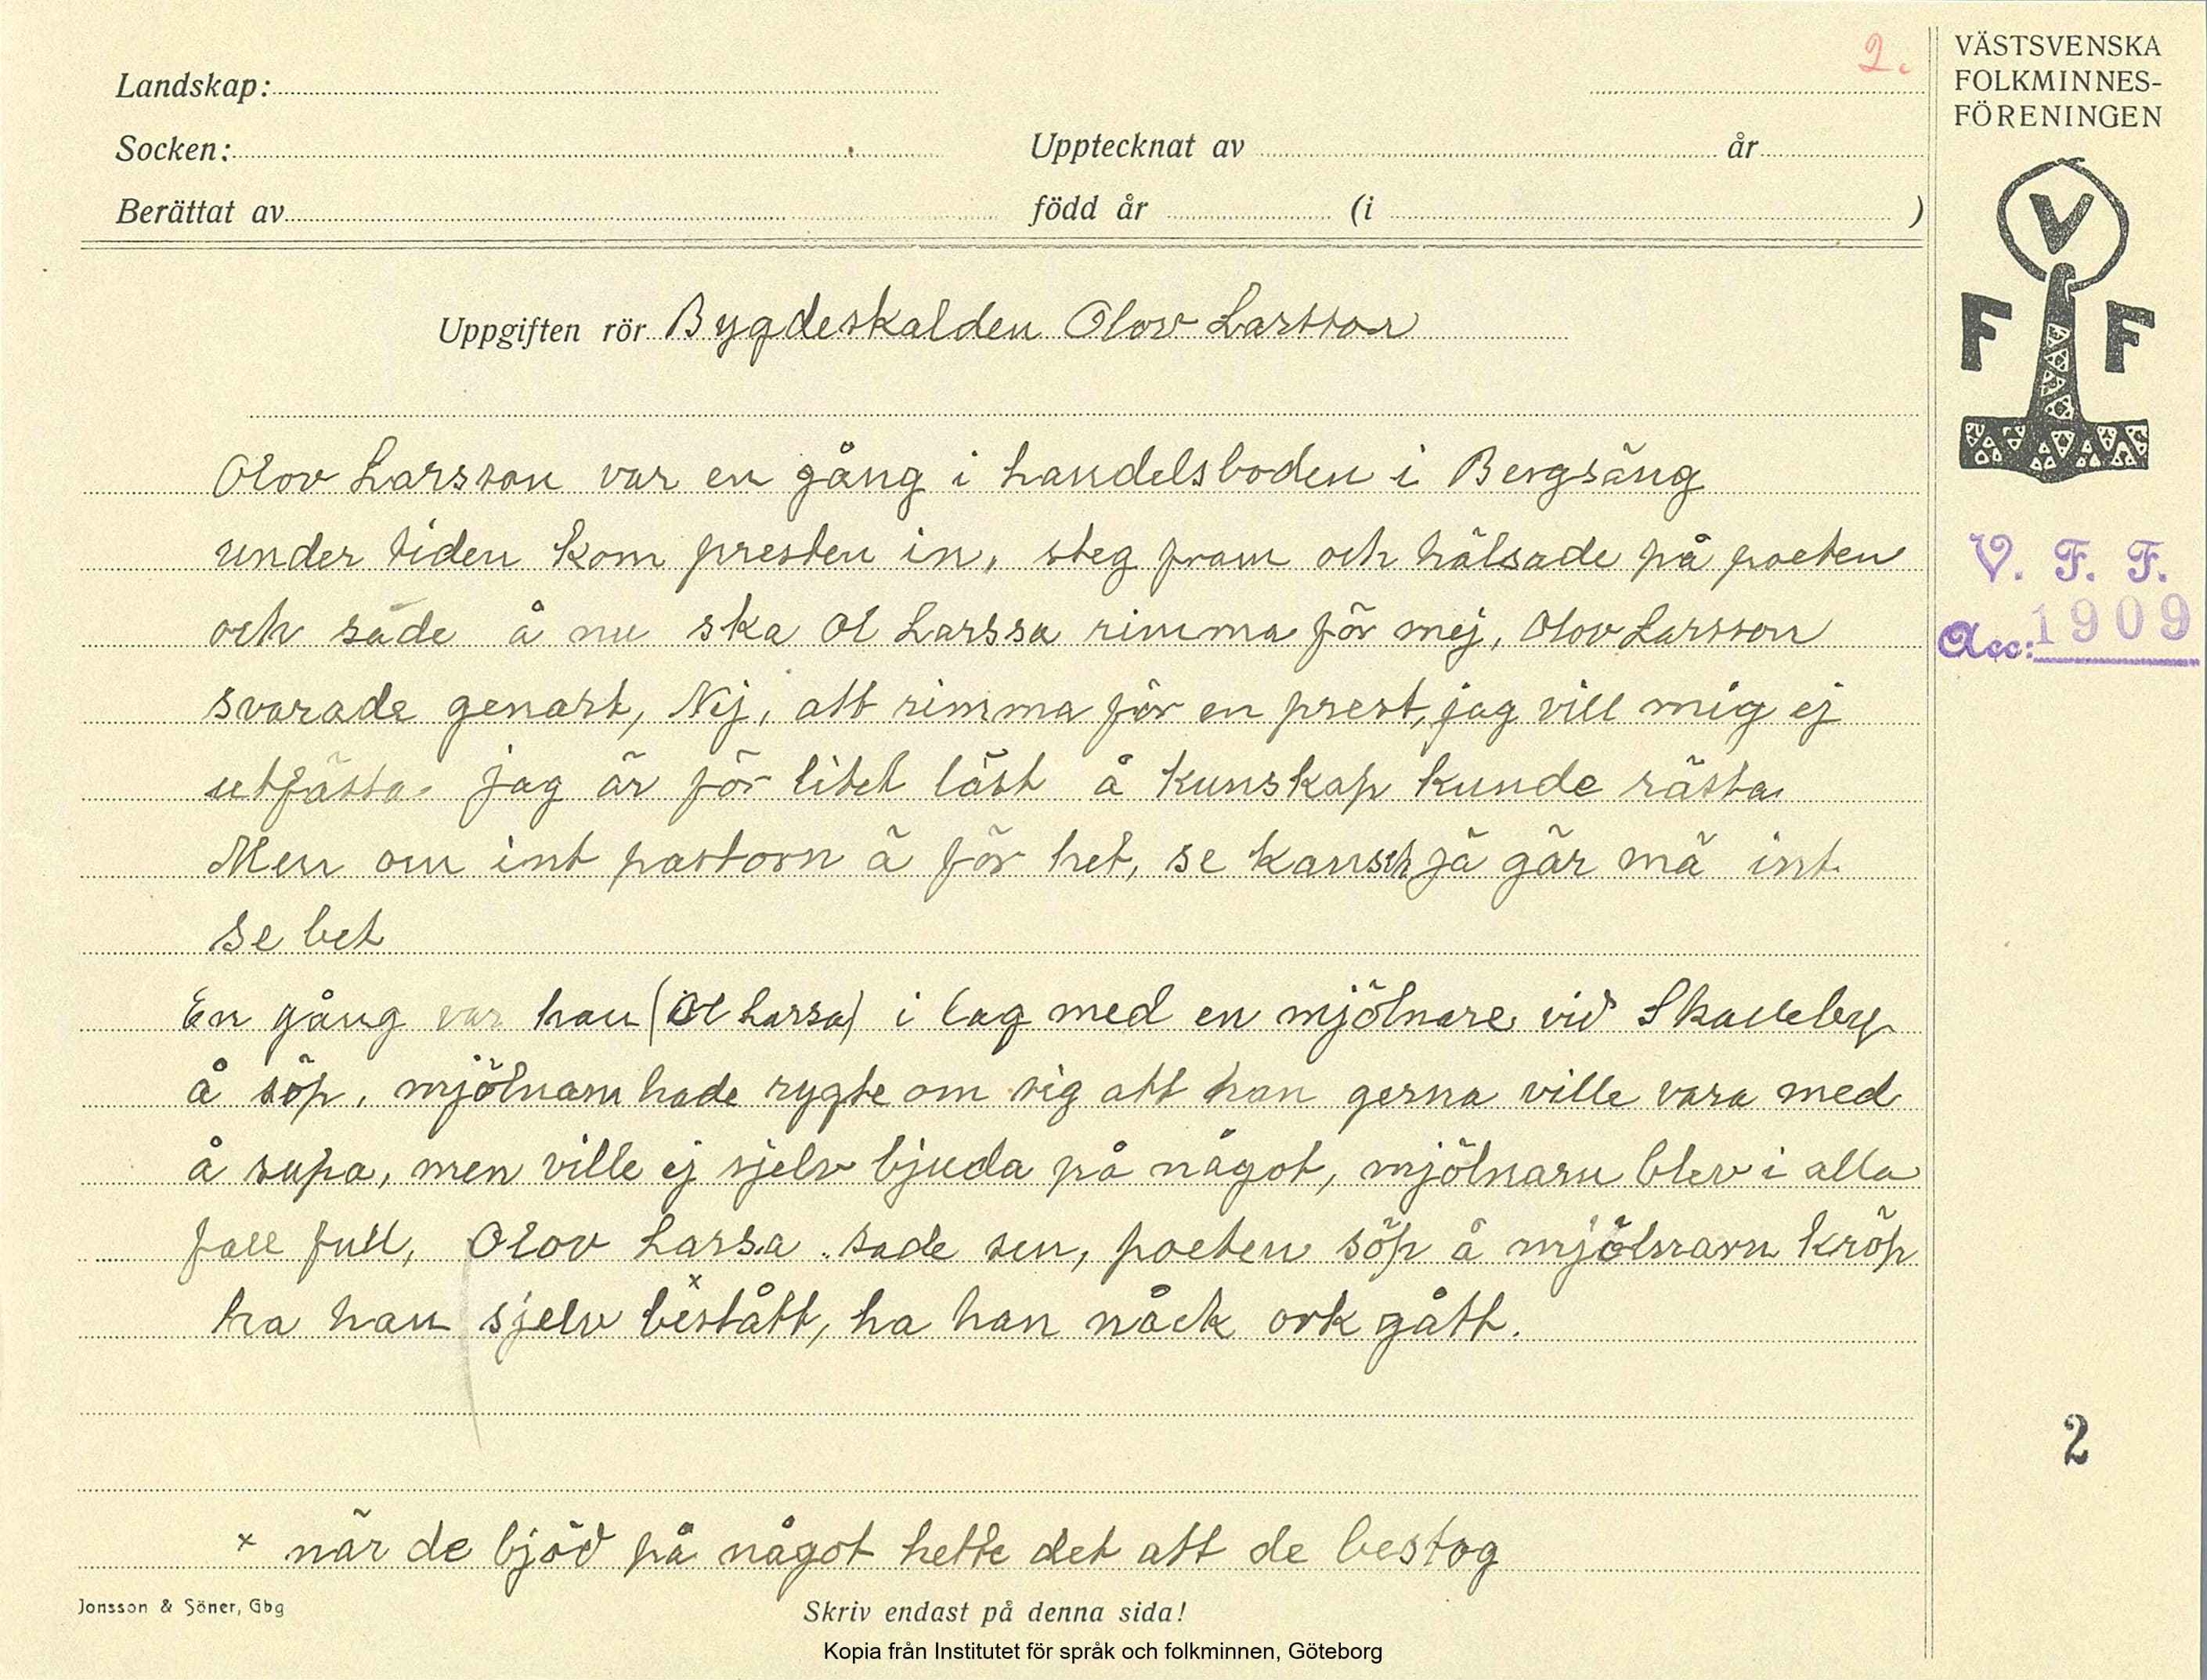 2.
VÄSTSVENSKA
FOLKMINNES-
FÖRENINGEN
Landskap:
Socken: Upptecknat av år
Berättat av född år (i )
V
F F
Uppgiften rör Bygdeskalden Olov Larsson
Olov Larsson var en gång i handelsboden i Bergsäng
under tiden kom presten in, steg fram och hälsade på poeten
och sade å nu ska Ol Larssa rimma för mej, Olov Larsson
svarade genast, Nej, att rimma för en prest, jag vill mig ej
utfästa jag är för litet läst å kunskap kunde rästa.
Men om int pastorn ä för het, se kansch jä gär mä int
se bet
En gång var han (Ol Larsa) i lag med en mjölnare vid Skalleby
å söp, mjölnarn hade rygte om sig att han gerna ville vara med
å supa, men ville ej sjelv bjuda på något, mjölnarn blev i alla
fall full, Olov Larsa sade sen, poeten söp å mjölnarn kröp
ha han sjelv bestått, ha han nåck ork gått.
x
x när de bjöd på något hette det att de bestog
V. F. F.
Acc: 1909
2
Jonsson & Söner, Gbg
Skriv endast på denna sida!
Kopia från Institutet för språk och folkminnen, Göteborg